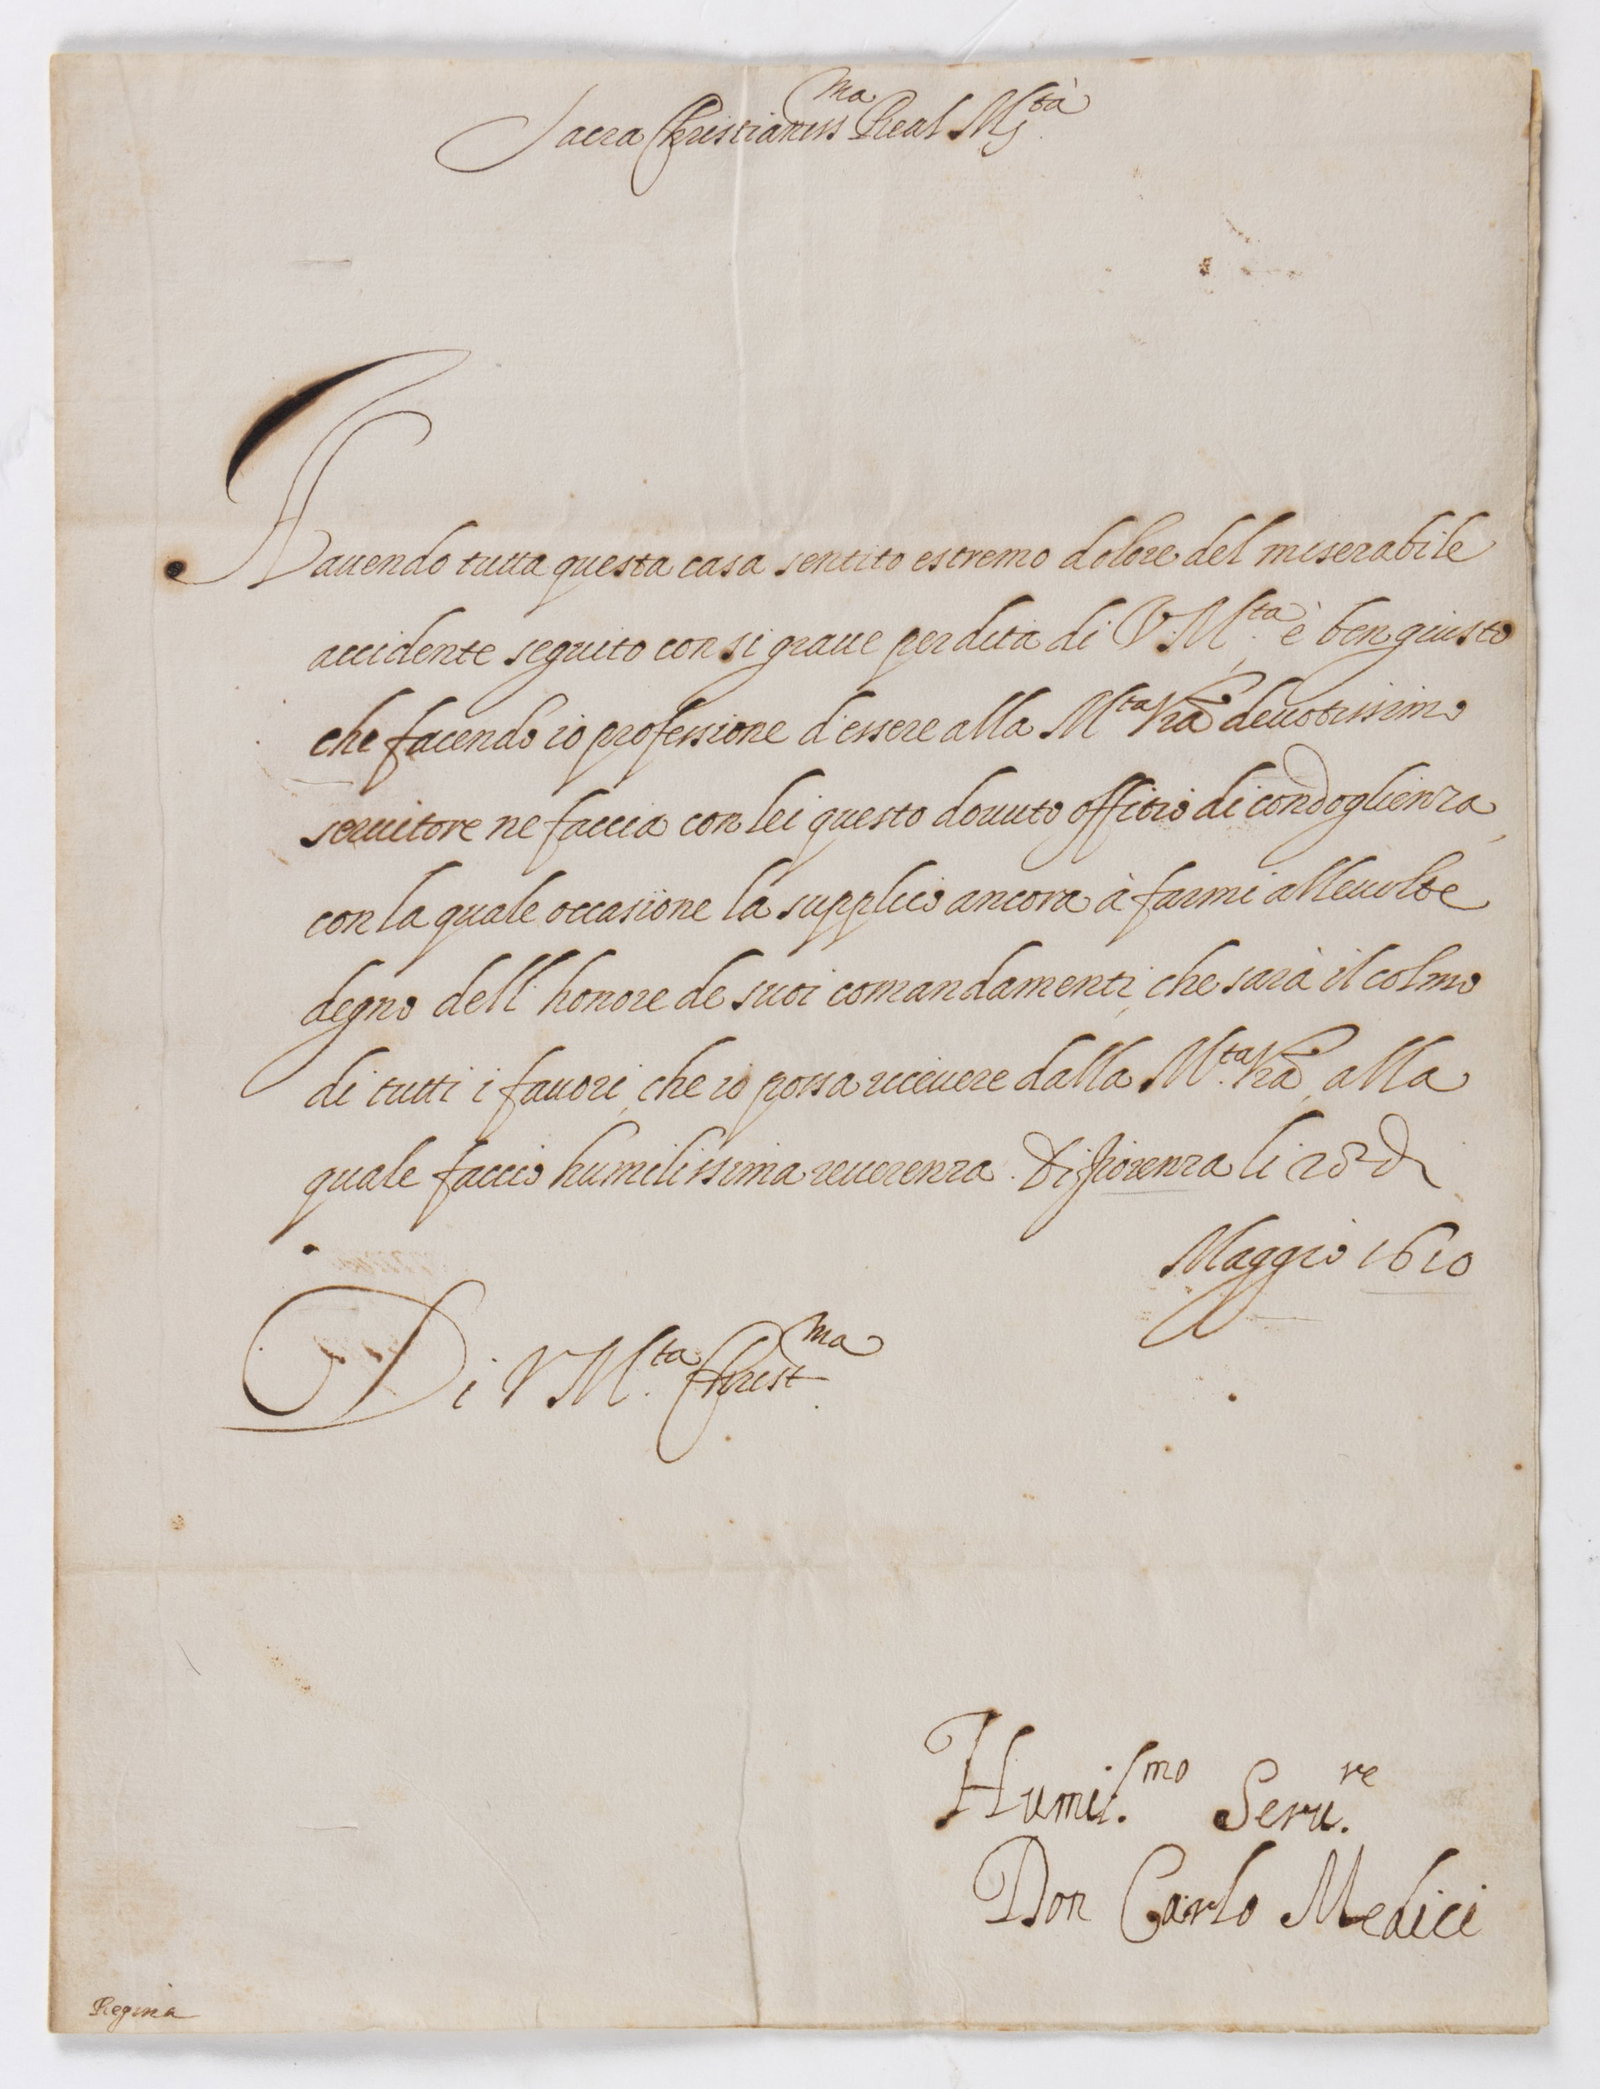 Sacra Christianiss.ma Real M.tà
Hauendo tutta questa casa sentito estremo dolore del miserabile
accidente seguito con si graue perdita di V. M.ta è ben giusto
che facendo io professione d'essere alla M.ta Vra deuotissimo
seruitore ne faccia con lei questo douuto offitio di condoglienza,
con la quale occasione la supplico ancora à farmi alleuolte
degno dell' honore de suoi comandamenti, che sarà il colmo
di tutti i fauori, che io possa riceuere dalla M.ta Vra, alla
quale faccio humilissima reuerenza. Di Fiorenza li
Maggio 1610
Di V M.ta Christ.ma
Humil.mo Seru.re
Don Carlo Medici
Regina